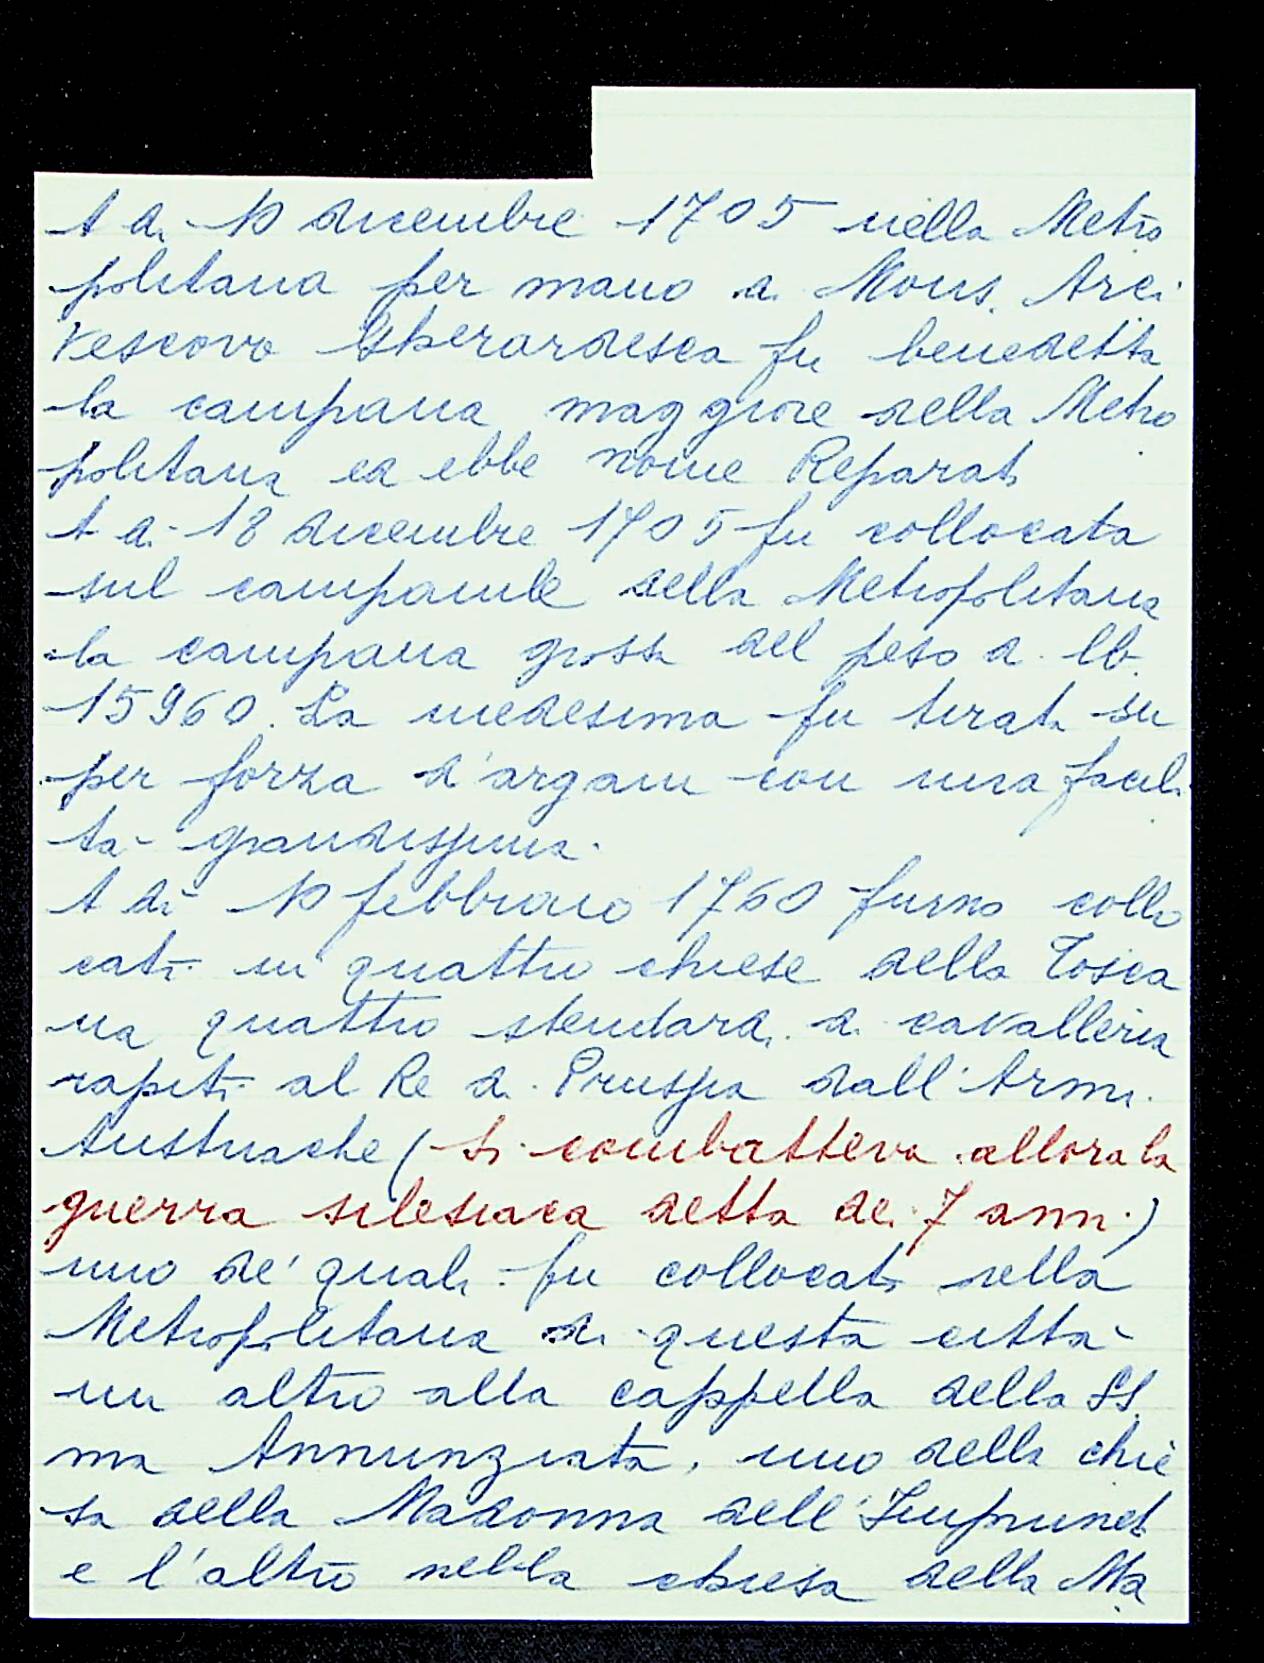 A dì 10 dicembre 1705 nella Metro
politana per mano di Mons. Arci
vescovo Gherardesca fu benedetta
la campana maggiore della Metro
politana ed ebbe nome Reparata
A dì 18 dicembre 1705 fu collocata
sul campanile della Metropolitana
la campana grossa del peso di lb.
15960. La medesima fu tirata su
per forza d'argani con una facili
tà grandissima.
A dì 10 febbraio 1760 furno collo
cati in quattro chiese della Tosca
na quattro stendardi di cavalleria
rapiti al Re di Prussia dall'Armi
Austriache (si combatteva allora la
guerra silesiaca detta dei 7 anni)
uno de' quali fu collocato nella
Metropolitana di questa città
un altro alla cappella della SS.
ma Annunziata, uno della chie
sa della Madonna dell'Impruneta
e l'altro nella chiesa della Ma